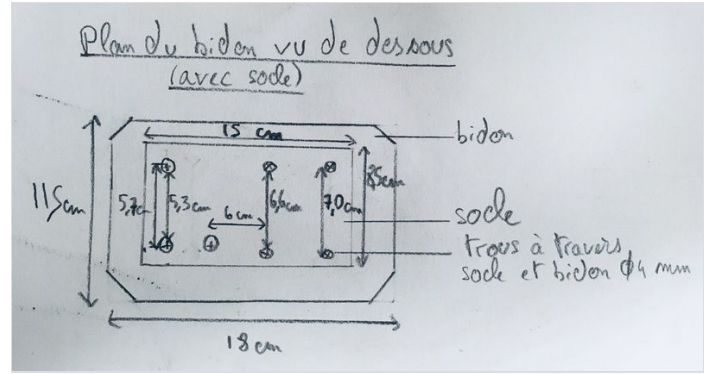 Plan du bidon vu de dessous
(avec socle)
15 cm
bidon
11,5cm
5,7c
5,3cm
6cm
6,6cm
7,0cm
8,5cm
socle
trous à travers
socle et bidon ϕ4 mm
18 cm